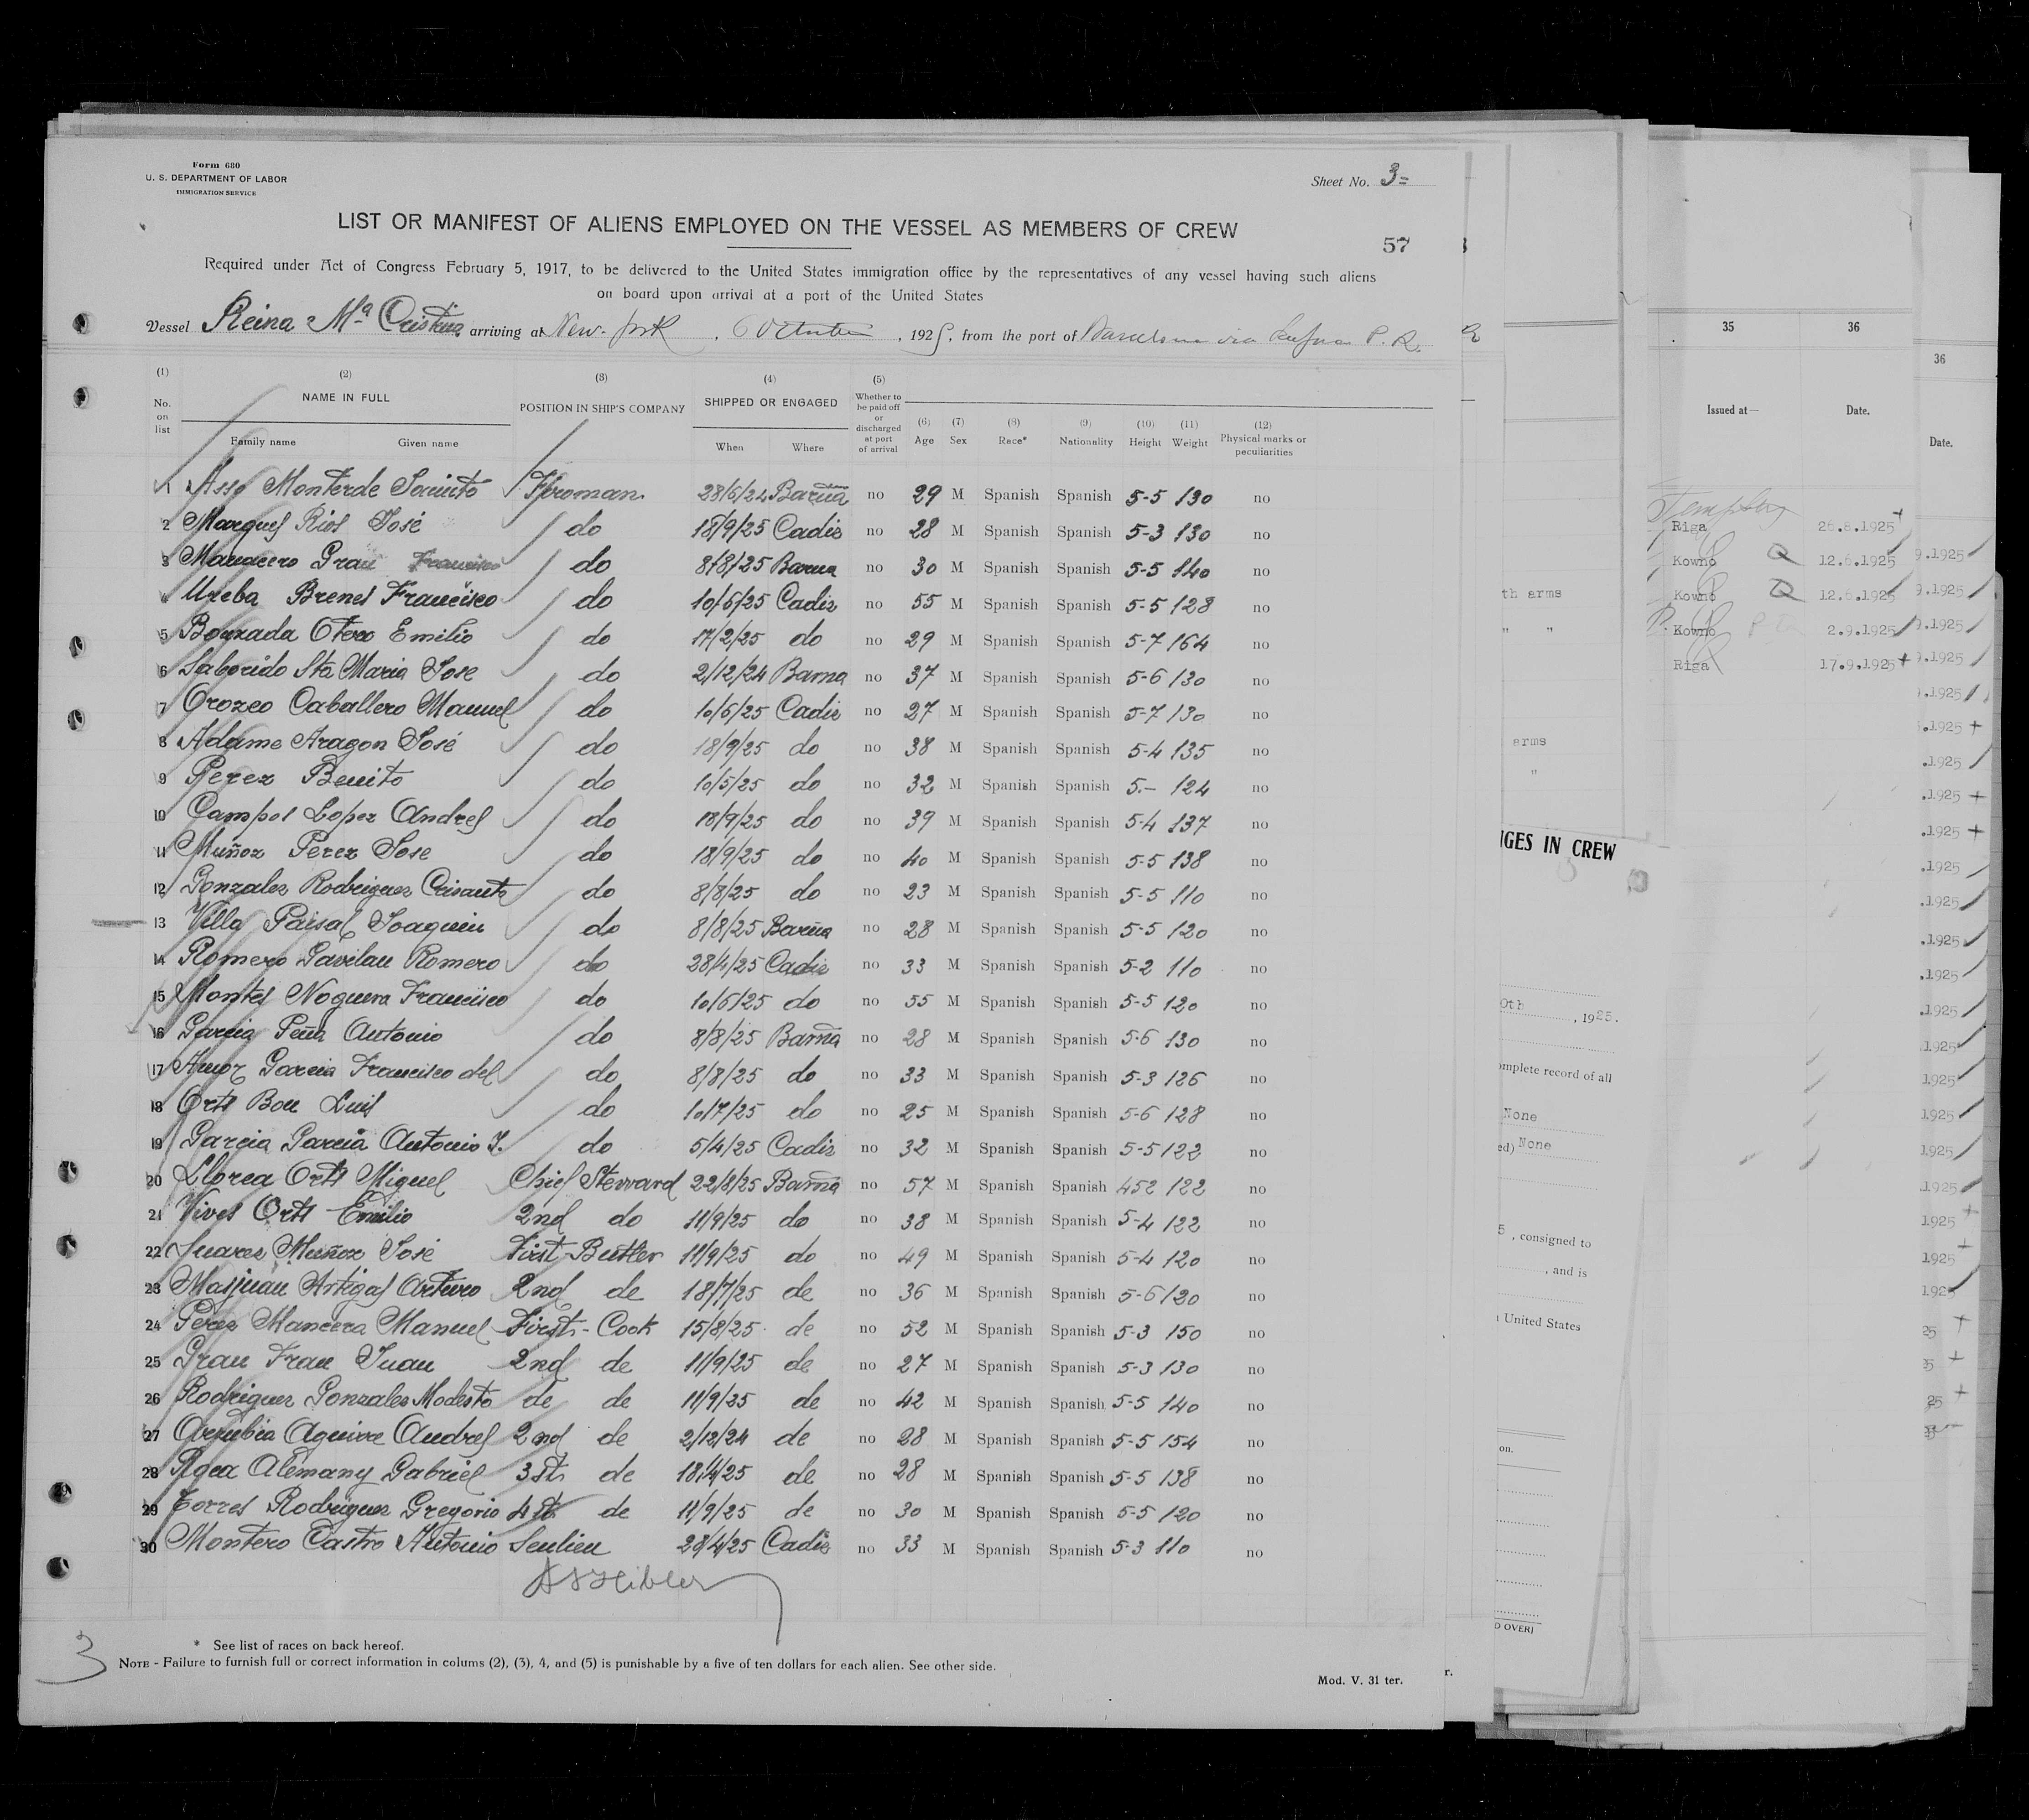 Form 680
U. S. DEPARTMENT OF LABOR
IMMIGRATION SERVICE
Sheet No. 3=
LIST OR MANIFEST OF ALIENS EMPLOYED ON THE VESSEL AS MEMBERS OF CREW
57
Required under Act of Congress February 5, 1917, to be delivered to the United States immigration office by the representatives of any vessel having such aliens
on board upon arrival at a port of the United States
Vessel Reina Mª Cristina arriving at New-York, 6 October, 1925, from the port of Barcelona via P. R.
(1) (2) (3) (4) (5)
No. on list NAME IN FULL POSITION IN SHIP'S COMPANY SHIPPED OR ENGAGED Whether to be paid off or discharged at port of arrival (6) Age (7) Sex (8) Race* (9) Nationality (10) Height (11) Weight (12) Physical marks or peculiarities
Family name Given name When Where
1 Asso Monterde Jacinto Fireman 28/6/24 Barña no 29 M Spanish Spanish 5-5 130 no
2 Marques Rios José do 18/9/25 Cadiz no 28 M Spanish Spanish 5-3 130 no
3 Manacero Grau Francisco do 8/8/25 Barna no 30 M Spanish Spanish 5-5 140 no
4 Ureba Brenes Francisco do 10/6/25 Cadiz no 55 M Spanish Spanish 5-5 128 no
5 Bouzada Otero Emilio do 17/2/25 do no 29 M Spanish Spanish 5-7 164 no
6 Saborido Sta Maria Jose do 2/12/24 Barna no 37 M Spanish Spanish 5-6 130 no
7 Orozco Caballero Manuel do 10/6/25 Cadiz no 27 M Spanish Spanish 5-7 130 no
8 Adame Aragon José do 18/9/25 do no 38 M Spanish Spanish 5-4 135 no
9 Perez Benito do 10/5/25 do no 32 M Spanish Spanish 5.- 124 no
10 Campos Lopez Andres do 18/9/25 do no 39 M Spanish Spanish 5-4 137 no
11 Muñoz Perez Jose do 18/9/25 do no 40 M Spanish Spanish 5-5 138 no
12 Gonzalez Rodriguez Crisanto do 8/8/25 do no 23 M Spanish Spanish 5-5 110 no
13 Villa Paisal Joaquin do 8/8/25 Barña no 28 M Spanish Spanish 5-5 120 no
14 Romero Gavilan Romero do 28/4/25 Cadiz no 33 M Spanish Spanish 5-2 110 no
15 Montes Noguera Francisco do 10/6/25 do no 55 M Spanish Spanish 5-5 120 no
16 Garcia Peña Antonio do 8/8/25 Barña no 28 M Spanish Spanish 5-6 130 no
17 Amor Garcia Francisco del do 8/8/25 do no 33 M Spanish Spanish 5-3 126 no
18 Orts Bou Luis do 10/7/25 do no 25 M Spanish Spanish 5-6 128 no
19 Garcia Garcia Antonio J. do 5/4/25 Cadiz no 32 M Spanish Spanish 5-5 122 no
20 Llorca Orts Miguel Chief Steward 22/8/25 Barña no 57 M Spanish Spanish 452 122 no
21 Vives Orts Emilio 2nd do 11/9/25 do no 38 M Spanish Spanish 5-4 122 no
22 Suarez Muñoz José First Butler 11/9/25 do no 49 M Spanish Spanish 5-4 120 no
23 Masjuan Artigas Arturo 2nd de 18/7/25 de no 36 M Spanish Spanish 5-6 120 no
24 Perez Mancera Manuel First-Cook 15/8/25 de no 52 M Spanish Spanish 5-3 150 no
25 Grau Frau Juan 2nd de 11/9/25 de no 27 M Spanish Spanish 5-3 130 no
26 Rodriguez Gonzales Modesto de de 11/9/25 de no 42 M Spanish Spanish 5-5 140 no
27 Aguirre Andres 2nd de 2/12/24 de no 28 M Spanish Spanish 5-5 154 no
28 Alemany Gabriel 3st de 18/4/25 de no 28 M Spanish Spanish 5-5 138 no
29 Torres Rodriguez Gregorio 4st de 11/9/25 de no 30 M Spanish Spanish 5-5 120 no
30 Montero Castro Antonio 28/4/25 Cadiz no 33 M Spanish Spanish 5-3 110 no
3
* See list of races on back hereof.
NOTE - Failure to furnish full or correct information in colums (2), (3), 4, and (5) is punishable by a five of ten dollars for each alien. See other side.
Mod. V. 31 ter.
r.
th arms
" "
arms
"
IGES IN CREW
0th , 1925.
omplete record of all
None
ed) None
5 , consigned to
, and is
United States
on.
D OVER)
35 36
Issued at— Date.
Riga 26.8.1925
Kowno 12.6.1925
Kowno 12.6.1925
Kowno 2.9.1925
Riga 17.9.1925
36
Date.
9.1925
9.1925
9.1925
9.1925
.1925
.1925
.1925
.1925
.1925
.1925
.1925
.1925
.1925
.1925
1925
1925
1925
1925
1925
1925
1925
192
25
25
25